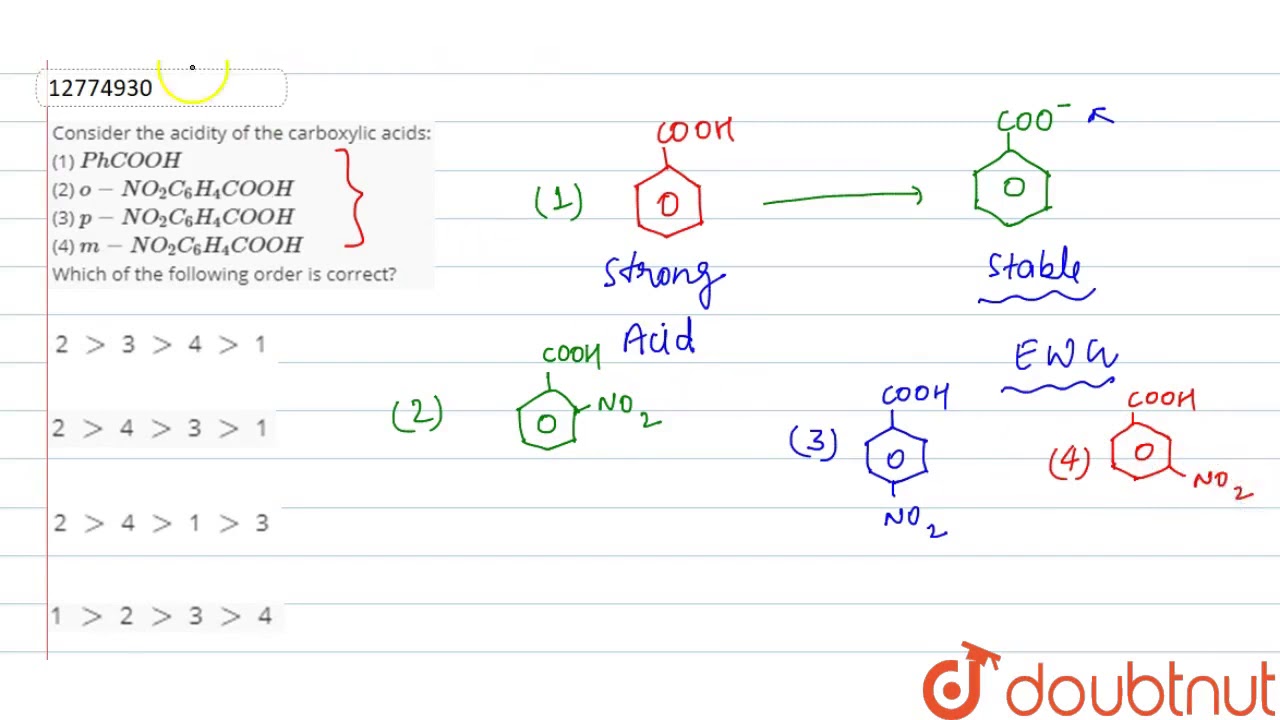 12774930
Consider the acidity of the carboxylic acids:
(1) PhCOOH
(2) o − NO₂C₆H₄COOH
(3) p − NO₂C₆H₄COOH
(4) m − NO₂C₆H₄COOH
Which of the following order is correct?
2 > 3 > 4 > 1
2 > 4 > 3 > 1
2 > 4 > 1 > 3
1 > 2 > 3 > 4
(1)
COOH
COO⁻
Strong
Acid
Stable
EWG
(2)
COOH
NO₂
(3)
COOH
NO₂
(4)
COOH
NO₂
doubtnut